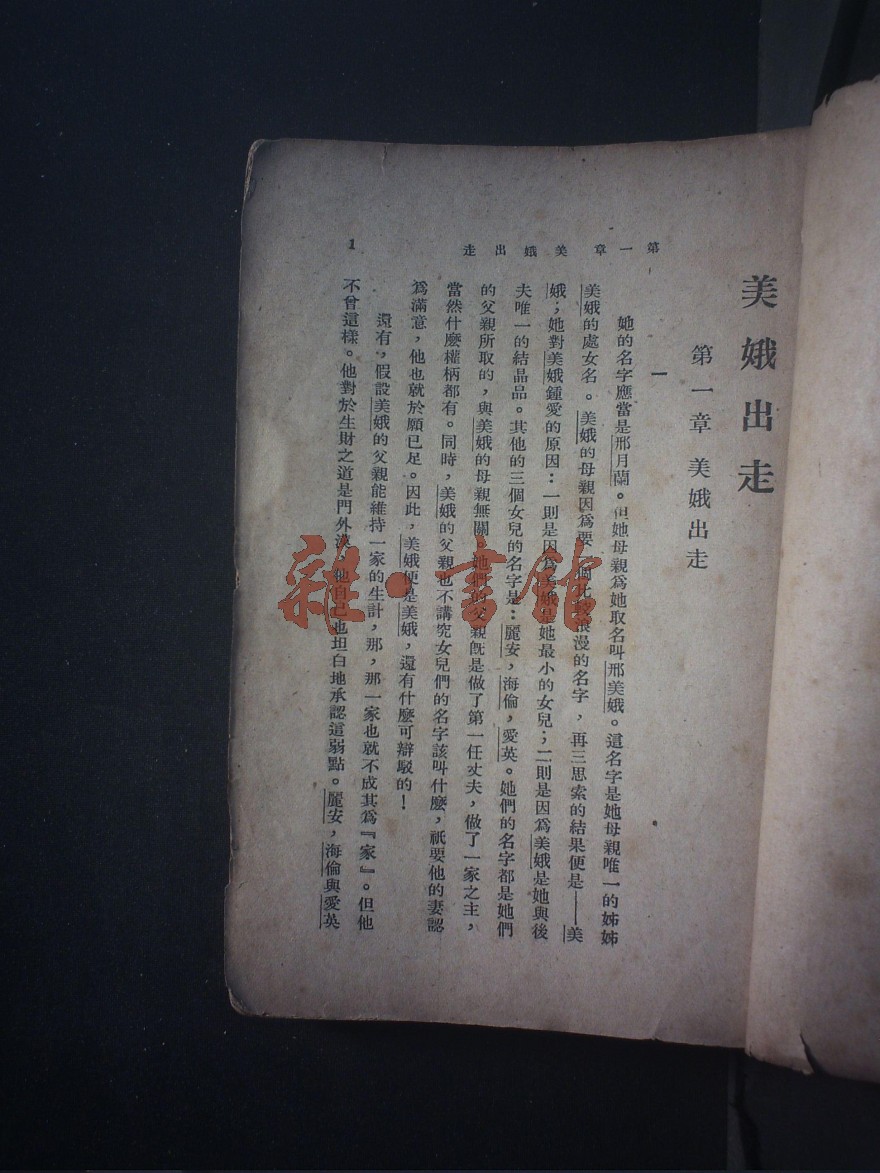 美娥出走
第一章 美娥出走
一
她的名字應當是邢月蘭。但她母親爲她取名叫邢美娥。這名字是她母親唯一的姊姊
美娥的處女名。美娥的母親因爲要一個比較浪漫的名字，再三思索的結果便是——美
娥；她對美娥鍾愛的原因：一則是因爲美娥是她最小的女兒；二則是因爲美娥是她與後
夫唯一的結晶品。其他的三個女兒的名字是：麗安，海倫，愛英。她們的名字都是她們
的父親所取的，與美娥的母親無關。她們的父親旣是做了第一任丈夫，做了一家之主，
當然什麼權柄都有。同時，美娥的父親也不講究女兒們的名字該叫什麼，祇要他的妻認
爲滿意，他也就於願已足。因此，美娥便是美娥，還有什麼可辯駁的！
還有，假設美娥的父親能維持一家的生計，那，那一家也就不成其爲『家』。但他
不曾這樣。他對於生財之道是門外漢，他自己也坦白地承認這弱點。麗安，海倫與愛英
第一章 美娥出走
1
雜·書館